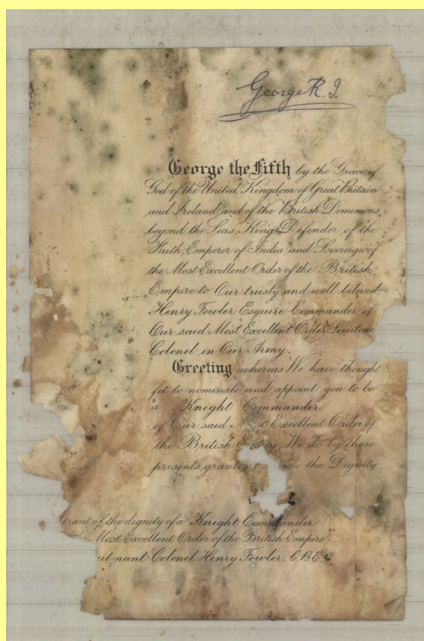 George R. I.
George the Fifth by the Grace of
God of the United Kingdom of Great Britain
and Ireland and of the British Dominions
beyond the Seas, King, Defender of the
Faith, Emperor of India and Sovereign of
the Most Excellent Order of the British
Empire to Our trusty and well beloved
Henry Fowler Esquire Commander of
Our said Most Excellent Order Lieuten
Colonel in Our Army.
Greeting whereas We have thought
fit to nominate and appoint you to be
a Knight Commander
of Our said Most Excellent Order of
the British Empire We do by these
presents grant the Dignity
Grant of the dignity of a Knight Commander
Most Excellent Order of the British Empire
nant Colonel Henry Fowler, C.B.E.